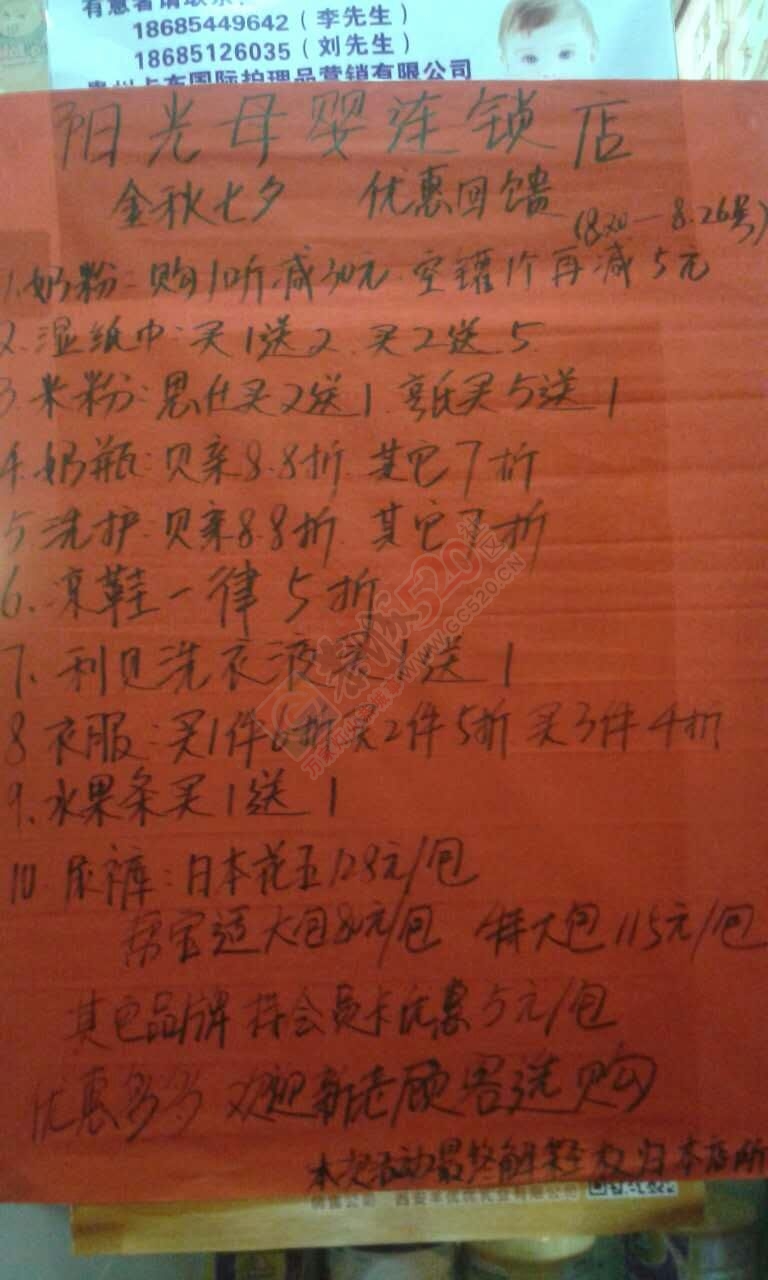 18685449642（李先生）
18685126035（刘先生）
贵州卡布国际护理品营销有限公司
阳光母婴连锁店
金秋七夕 优惠回馈
(8.20—8.26号)
1.奶粉:购1听减30元.空罐1个再减5元
2.湿纸巾:买1送2 买2送5
3.米粉:恩仕买2送1 亨氏买5送1
4.奶瓶:贝亲8.8折 其它7折
5.洗护:贝亲8.8折 其它7折
6.凉鞋一律5折
7.利贝洗衣液买1送1
8.衣服:买1件6折买2件5折买3件4折
9.水果条买1送1
10.尿裤:日本花王128元/包
帮宝适大包80元/包 特大包115元/包
其它品牌持会员卡优惠5元/包
优惠多多 欢迎新老顾客选购
本次活动最终解释权归本店所
奉顺520社区
WWW.GC520.CN